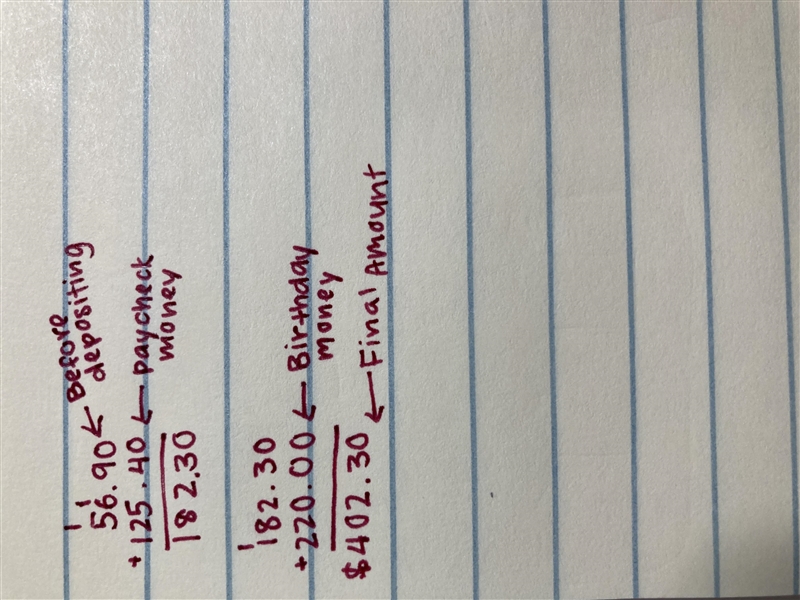 1 1
56.90 ← Before depositing
+125.40 ← paycheck money
182.30
1
182.30
+220.00 ← Birthday money
$402.30 ← Final Amount